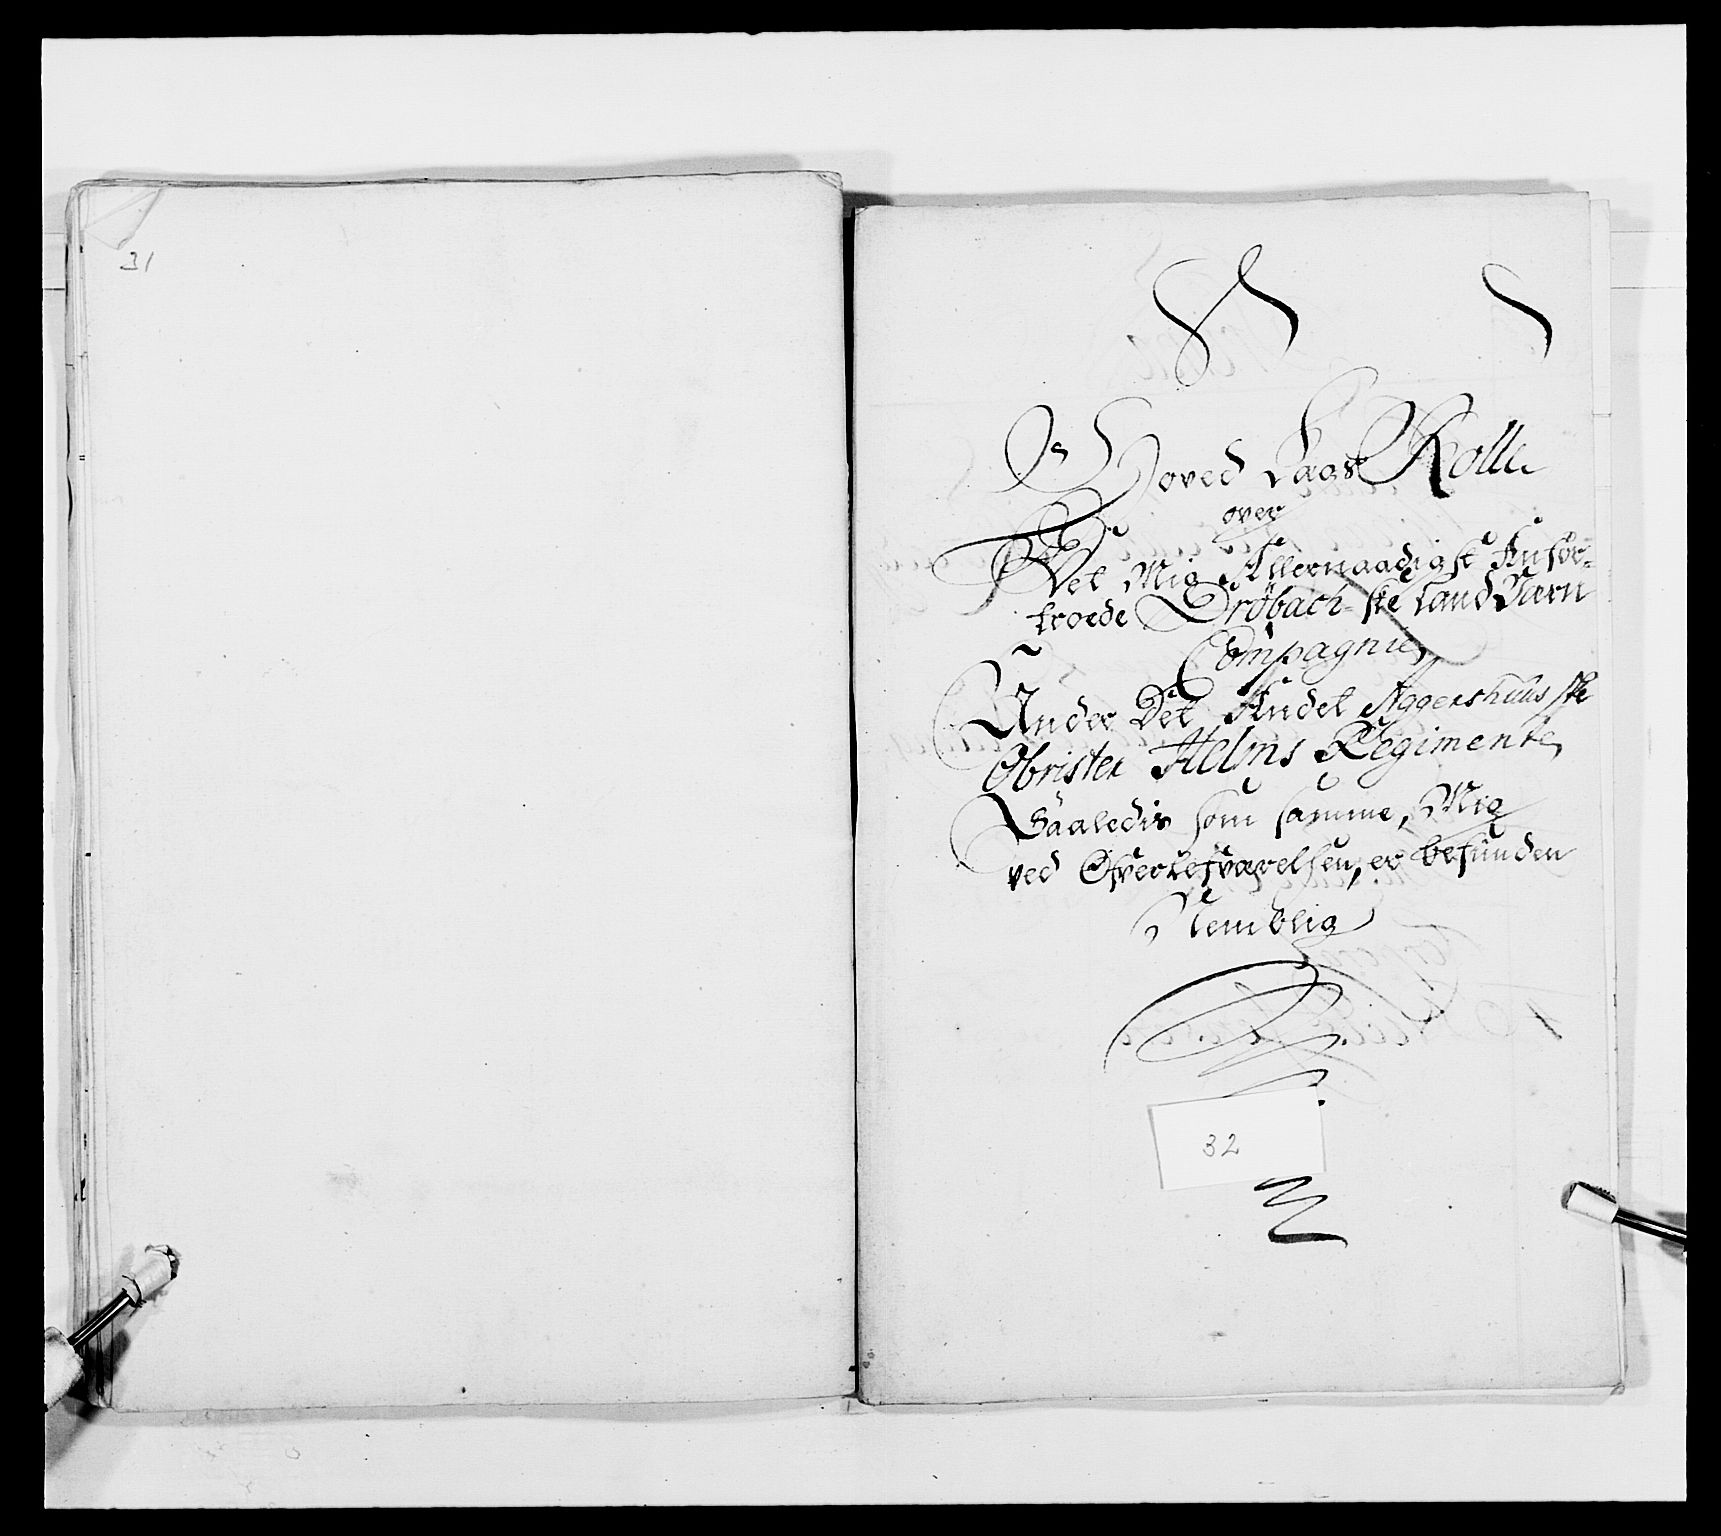 31
Hoved Lags Rolle
over
Det Mig Allernaadigst Anfor-
troede Dröbach-ske LandVærn
Compagnie,
Under Det Andet Aggershuus ske
Obrister Helms Regimente,
Saaledis som samme, Mig
ved Ofverlefværelsen, er befunden
Nemblig
32